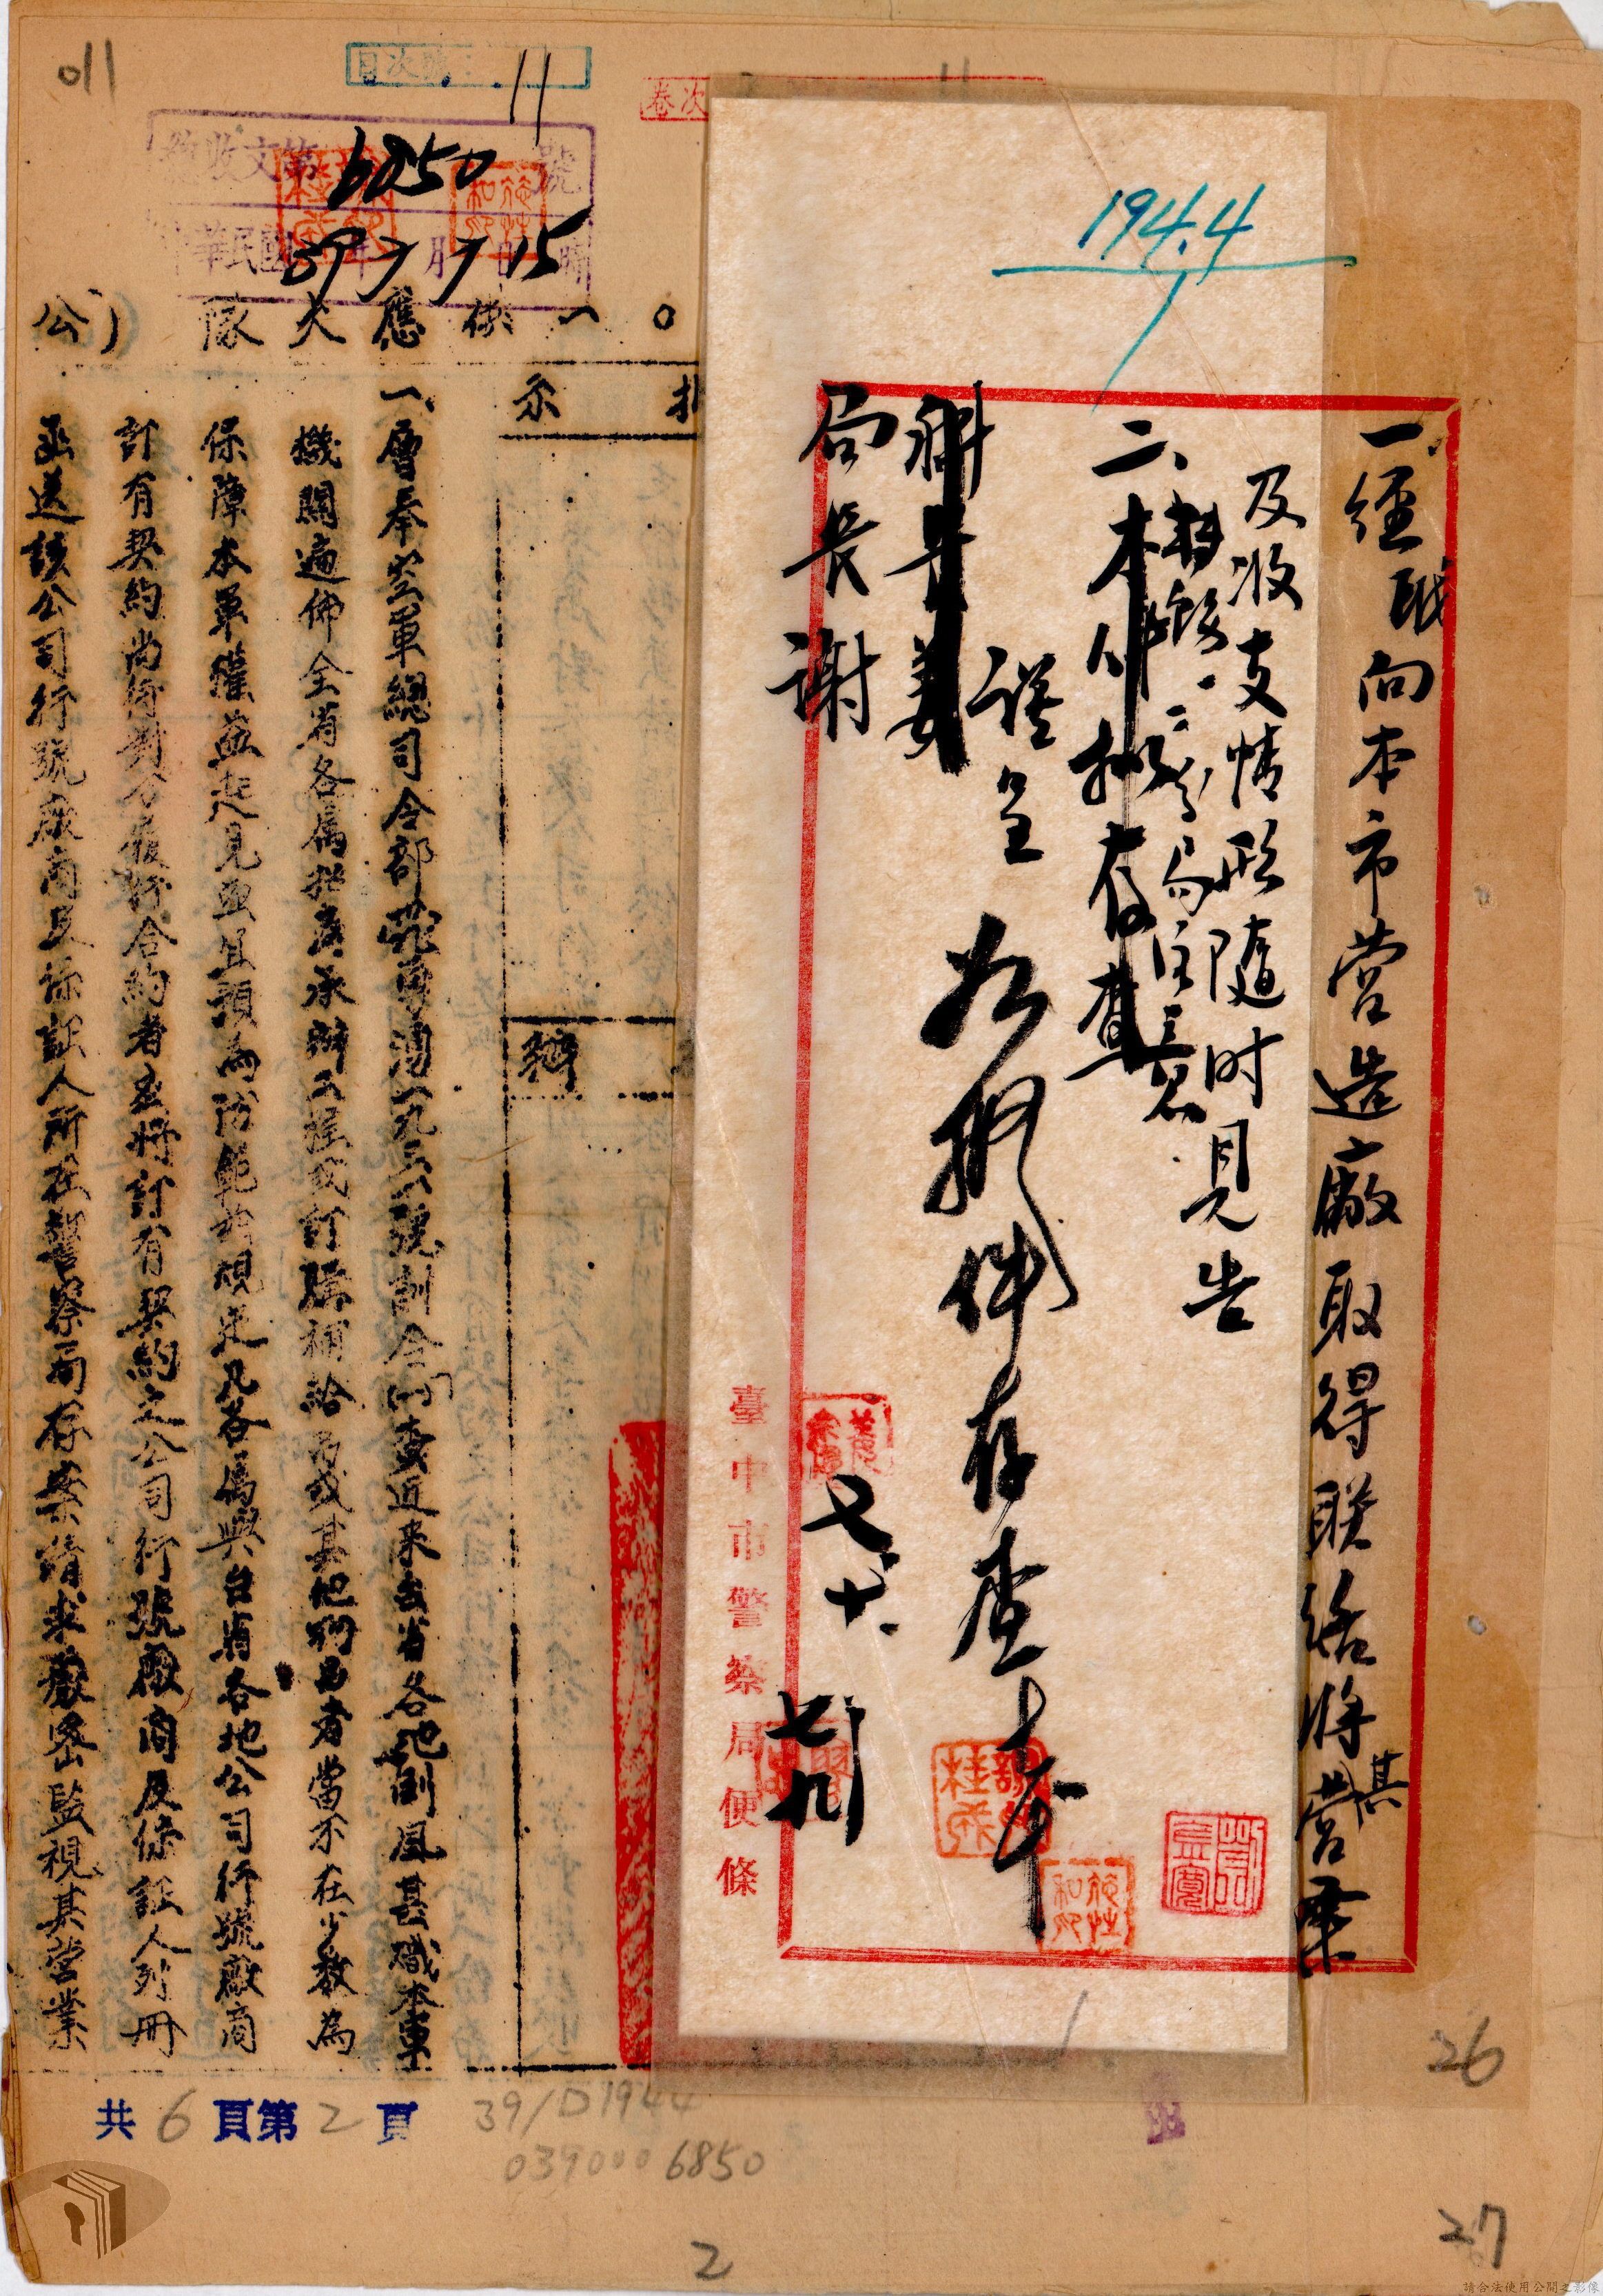 011
目次號：11
卷次
總收文第6850號
中華民國39年7月7日15時
194.4
一、經職向本市營造廠取得聯絡將其營業
及收支情形隨时具告
二、本件擬存查
謹呈
科長姜
局長謝
如擬件存查
七、十、
臺中市警察局便條
〇一供應大隊
(公)
示
辦
一、層奉空軍總司令部
號副令開「查近來台省各地倒風甚熾本軍
機關遍佈全省各屬招商承辦工程或訂購補給品或其他物品者當不在少數為
保障本軍權益起見亟且預為防範茲規定凡各屬與台省各地公司行號廠商
訂有契約尚何對方履行合約者並將訂有契約之公司行號廠商及保証人列冊
函送該公司行號廠商及保証人所在警察局存案請求嚴密監視其營業
共6頁第2頁
39/D1944
0390006850
26
27
2
請合法使用公開之影像